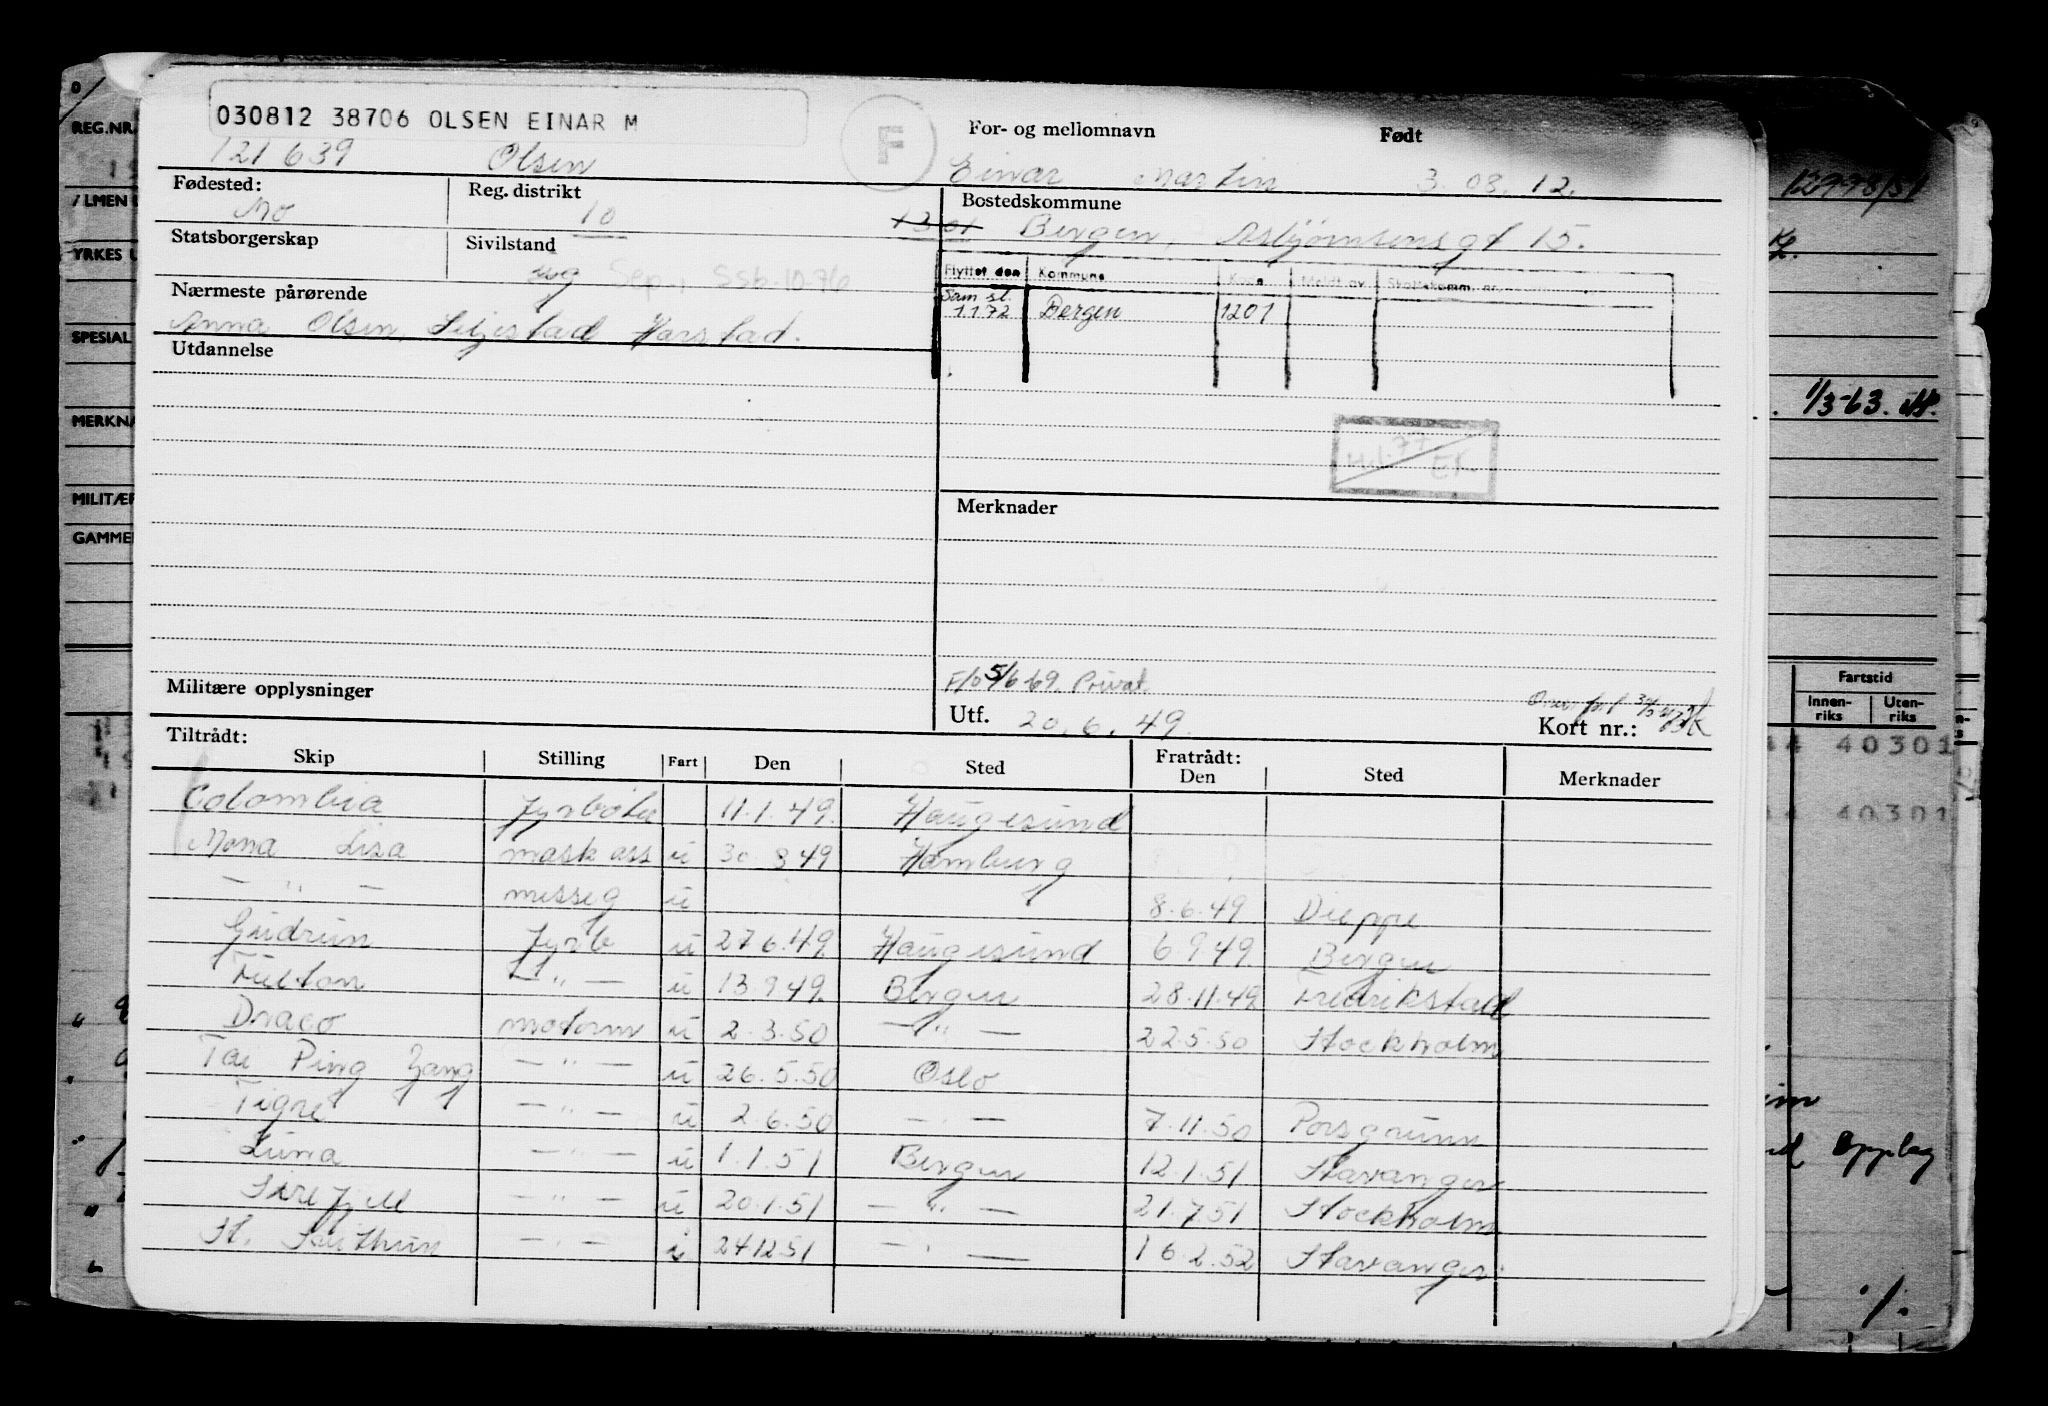 030812 38706 OLSEN EINAR M
F
For- og mellomnavn Født
121639 Olsen Einar Martin 3.08.12.
Fødested: Reg. distrikt Bostedskommune
Mo 10 1301 Bergen, Asbjørnsensgt 15.
Statsborgerskap Sivilstand
ug Sep., SSb. 10.76
Flyttet den Kommune Kode Meldt av Skattekomm. nr.
Nærmeste pårørende Sam. sl. 1.1.72 Bergen 1201
Anna Olsen, Seljestad Harstad.
Utdannelse
Merknader
Militære opplysninger
5/6-69. Privat.
Utf. 20.6.49. Kort nr.:
Tiltrådt: Fratrådt:
Skip Stilling Fart Den Sted Den Sted Merknader
Colombia fyrbøter 11.1.49. Haugesund
Mona Lisa mask ass u 30.3 49 Hamburg
— " — messeg u 8.6.49 Dieppe
Gudrun fyrb u 27 6.49. Haugesund 6.9.49. Bergen
Fulton — " — u 13.9.49. Bergen 28.11.49 Fredrikstad
Draco motorm u 2.3.50 — " — 22.5.50 Stockholm
Tai Ping Yang — " — u 26.5.50 Oslo
Tigre — " — u 2.6.50 — " — 7.11.50 Porsgrunn
Luna — " — u 1.1.51 Bergen 12.1.51 Stavanger
Sirefjell — " — u 20.1.51 — " — 21.7.51 Stockholm
St. Svithun — " — i 24.12.51 — " — 16.2.52 Stavanger
REG.NR.
YRKES
SPESIAL
MERKNA
MILITÆR
GAMMEL
12998/51
1/3-63.
Fartstid
Innen-riks Uten-riks
40301
40301